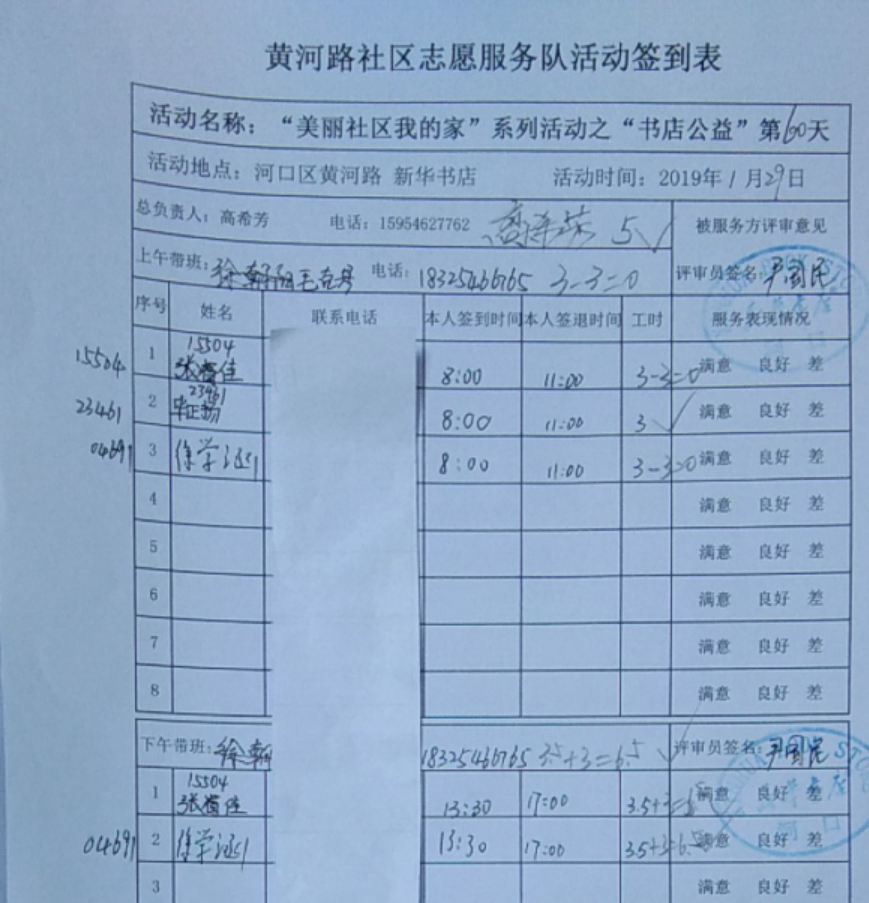 黄河路社区志愿服务队活动签到表
活动名称：“美丽社区我的家”系列活动之“书店公益”第60天
活动地点：河口区黄河路 新华书店 活动时间：2019年1月29日
总负责人：高希芳 电话：15954627762 高希芳 5√ 被服务方评审意见
上午带班：徐朝阳 电话：18325466765 3-3=0 评审员签名：尹国民
序号 姓名 联系电话 本人签到时间 本人签退时间 工时 服务表现情况
15504 1 15504 张 佳 8:00 11:00 3-3=0 满意 良好 差
23461 2 23461 8:00 11:00 3√ 满意 良好 差
04691 3 徐学涵 8:00 11:00 3-3=0 满意 良好 差
4 满意 良好 差
5 满意 良好 差
6 满意 良好 差
7 满意 良好 差
8 满意 良好 差
下午带班：徐朝 18325466765 3.5+3=6.5 √ 评审员签名：尹国民
1 15504 张 佳 13:30 17:00 3.5+3=6.5 满意 良好 差
04691 2 徐学涵 13:30 17:00 3.5+3=6.5 满意 良好 差
3 满意 良好 差